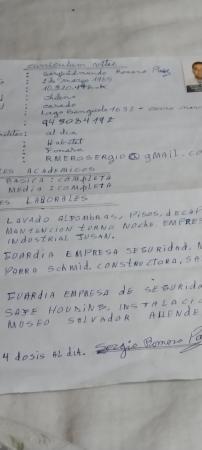 curriculum vitae
: Romero Paz
: 2 de marzo 1965
: 10.320.
: chileno
: casado
: Lago 1632 -
: 948084192
: al dia
: Habitat
: Fonasa
: RMEROSERGIO@gmail.co
ES ACADEMICOS
BASICA: COMPLETA
MEDIA: COMPLETA
ES LABORALES
LAVADO ALFOMBRAS, PISOS, DECAP
MANTENCION TURNO NOCHE, EMPRES
INDUSTRIAL JUSAN.
GUARDIA EMPRESA SEGURIDAD.
PORRA SCHMID. CONSTRUCTORA, SA
GUARDIA EMPRESA DE SEGURIDA
SAFE HOUDING, INSTALACI
MUSEO SALVADOR ALLENDE
4 DOSIS AL DIA. Sergio Romero Paz